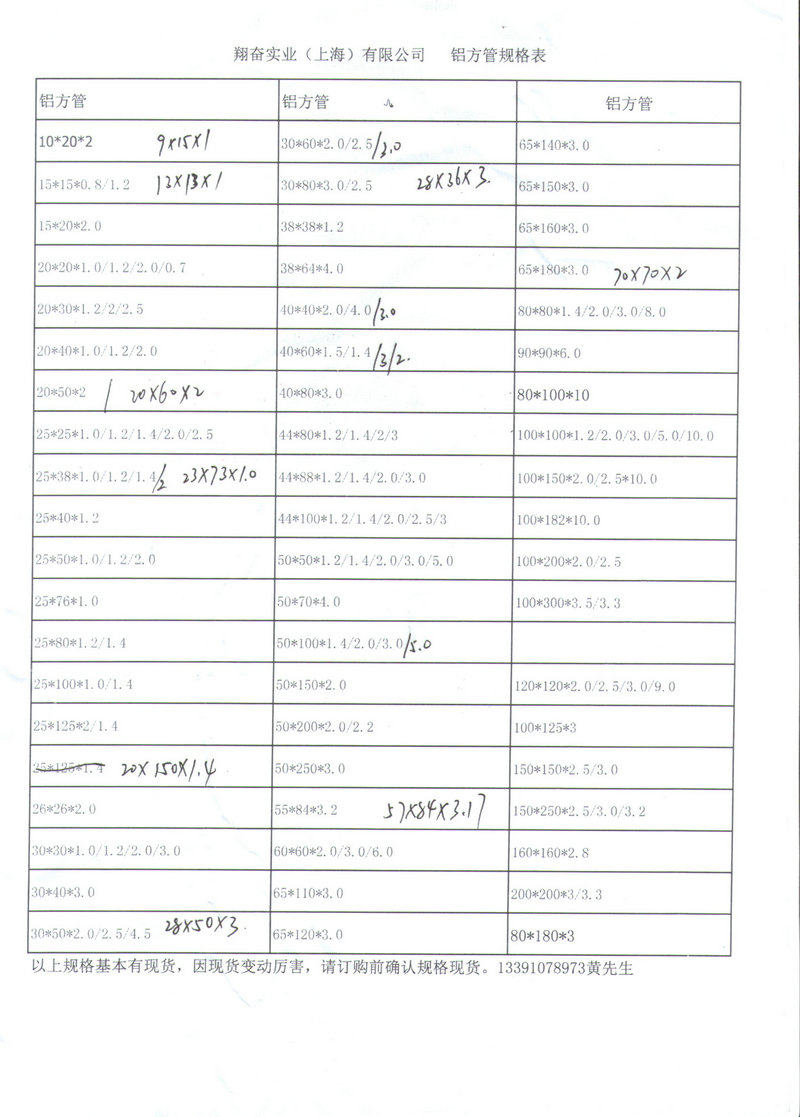 翔奋实业（上海）有限公司 铝方管规格表
铝方管 铝方管 铝方管
10*20*2 9X15X1 30*60*2.0/2.5/3.0 65*140*3.0
15*15*0.8/1.2 13X13X1 30*80*3.0/2.5 28X36X3. 65*150*3.0
15*20*2.0 38*38*1.2 65*160*3.0
20*20*1.0/1.2/2.0/0.7 38*64*4.0 65*180*3.0 70X70X2
20*30*1.2/2/2.5 40*40*2.0/4.0/3.0 80*80*1.4/2.0/3.0/8.0
20*40*1.0/1.2/2.0 40*60*1.5/1.4/3/2. 90*90*6.0
20*50*2 / 20X60X2 40*80*3.0 80*100*10
25*25*1.0/1.2/1.4/2.0/2.5 44*80*1.2/1.4/2/3 100*100*1.2/2.0/3.0/5.0/10.0
25*38*1.0/1.2/1.4/2 23X73X1.0 44*88*1.2/1.4/2.0/3.0 100*150*2.0/2.5*10.0
25*40*1.2 44*100*1.2/1.4/2.0/2.5/3 100*182*10.0
25*50*1.0/1.2/2.0 50*50*1.2/1.4/2.0/3.0/5.0 100*200*2.0/2.5
25*76*1.0 50*70*4.0 100*300*3.5/3.3
25*80*1.2/1.4 50*100*1.4/2.0/3.0/5.0
25*100*1.0/1.4 50*150*2.0 120*120*2.0/2.5/3.0/9.0
25*125*2/1.4 50*200*2.0/2.2 100*125*3
25*125*1.4 20X150X1.4 50*250*3.0 150*150*2.5/3.0
26*26*2.0 55*84*3.2 57X84X3.17 150*250*2.5/3.0/3.2
30*30*1.0/1.2/2.0/3.0 60*60*2.0/3.0/6.0 160*160*2.8
30*40*3.0 65*110*3.0 200*200*3/3.3
30*50*2.0/2.5/4.5 28X50X3. 65*120*3.0 80*180*3
以上规格基本有现货，因现货变动厉害，请订购前确认规格现货。13391078973黄先生